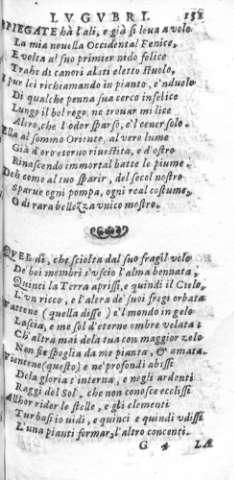 LVGVBRI. 151
SPIEGATE hà l'ali, e già si leua a volo
La mia nouella Occidental Fenice,
E volta al suo primier nido felice
Trahe di canori alati eletto stuolo,
E pur lei richiamando in pianto, e'n duolo
Di qualche penna sua cerco infelice
Lungo il bel rogo, ne trouar mi lice
Altro, che l'odor sparso, e'l cener solo.
Ella al sommo Oriente, al vero lume
Già d'oro eterno riuestita, e d'ostro
Rinascendo immortal batte le piume.
Deh come al tuo sparir, del secol nostro
Sparue ogni pompa, ogni real costume,
O di rara bellezza vnico mostro.
QVEL dì, che sciolta dal suo fragil velo
De' bei membri s'vscio l'alma bennata,
Quinci la Terra aprissi, e quindi il Cielo,
L'vn ricco, e l'altra de' suoi fregi orbata
Vattene (quella disse) e'l mondo in gelo
Lascia, e me sol d'eterne ombre velata;
Ch'altra mai dela tua con maggior zelo
Non fie spoglia da me pianta, & amata.
Vientene (questo) e ne' profondi abissi
Dela gloria t'interna, e negli ardenti
Raggi del Sol, che non conosce ecclissi
Allhor rider le stelle, e gli elementi
Turbasi io vidi, e quinci e quindi vdissi
L'vna pianti formar, l'altro concenti.
G 4 LA